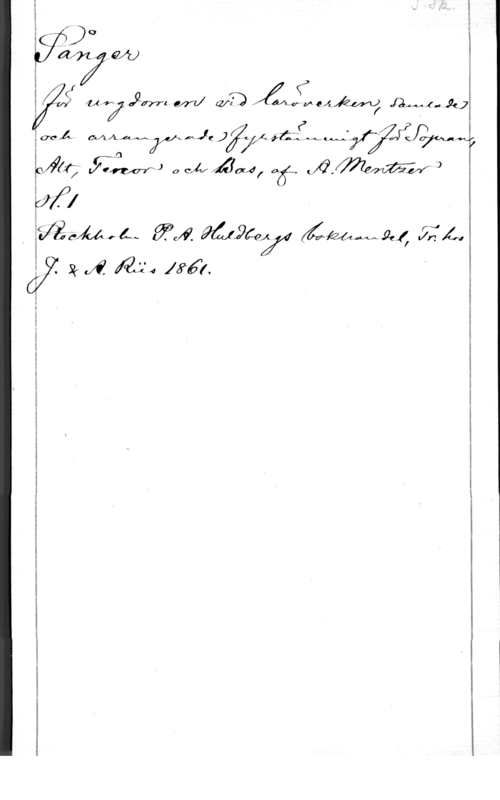 Sånger
för ungdomen vid läroverken, samlade
och arrangerade fyrstämmigt för Sopran,
Alt, Tenor och Bas, af A. Mentzer
H. 1
Stockholm P. A. Huldbergs bokhandel, Tr. hos
J. & A. Riis 1861.